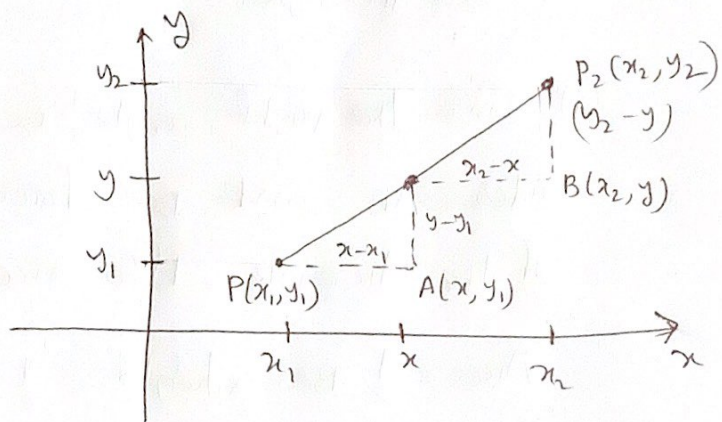 y
y₂
P₂(x₂, y₂)
(y₂-y)
y
x₂-x
B(x₂, y)
y-y₁
y₁
x-x₁
P(x₁, y₁)
A(x, y₁)
x₁
x
x₂
x